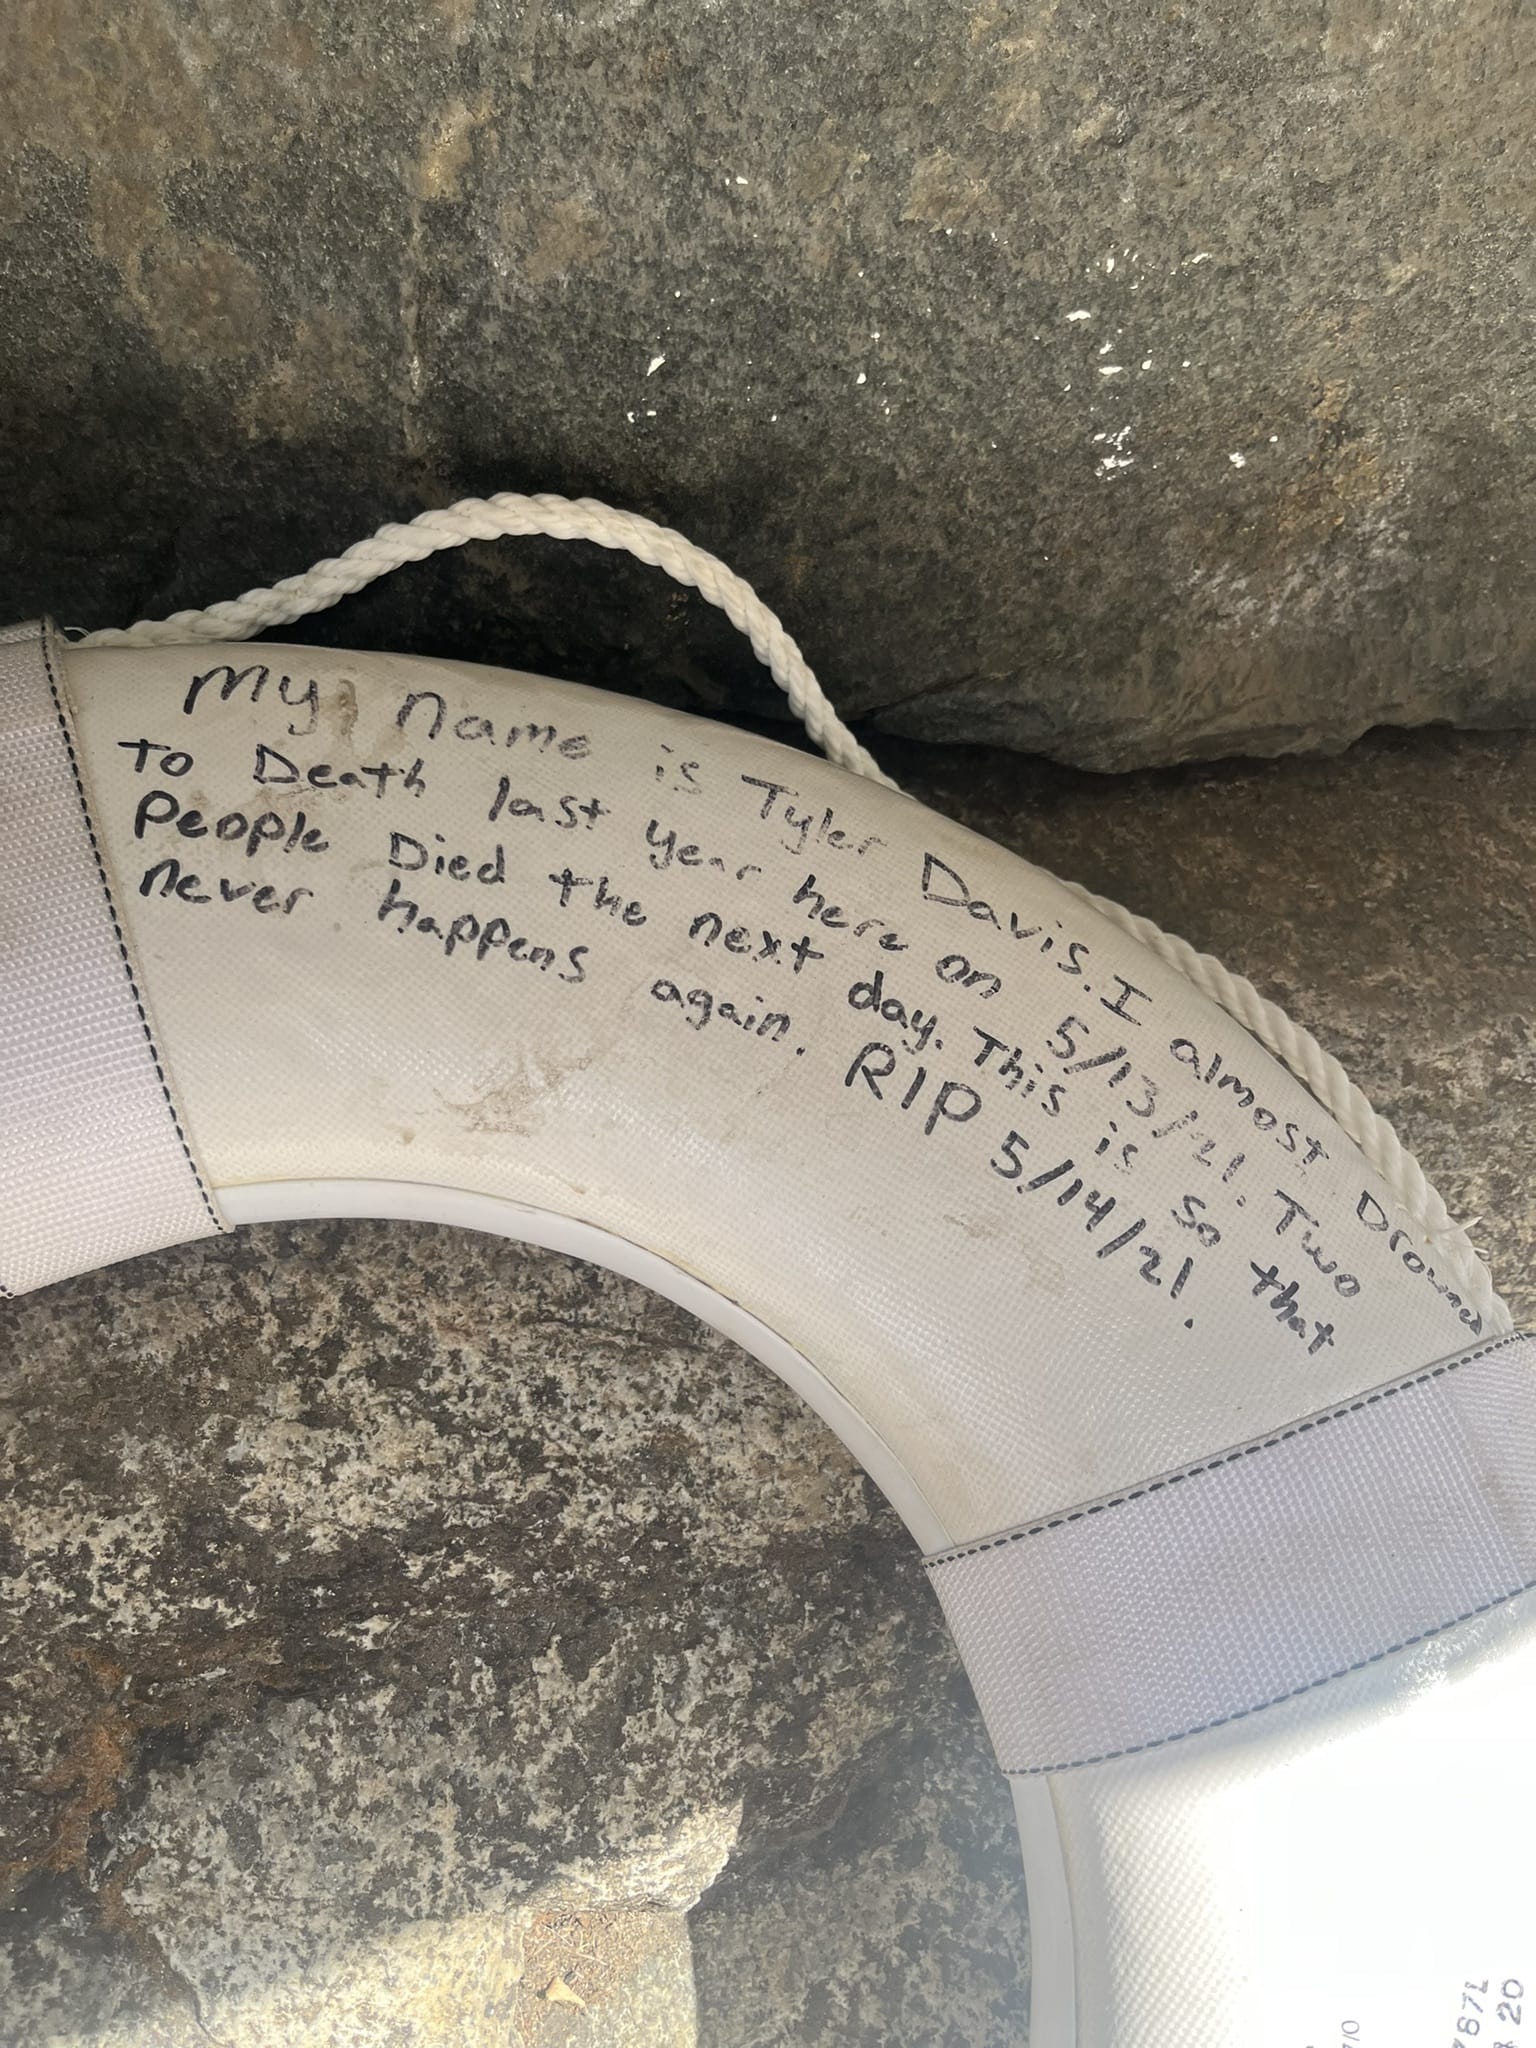 My name is Tyler Davis. I almost Drowned
To Death last year here on 5/13/21. Two
People Died the next day. This is so that
never happens again. RIP 5/14/21.
787L
20